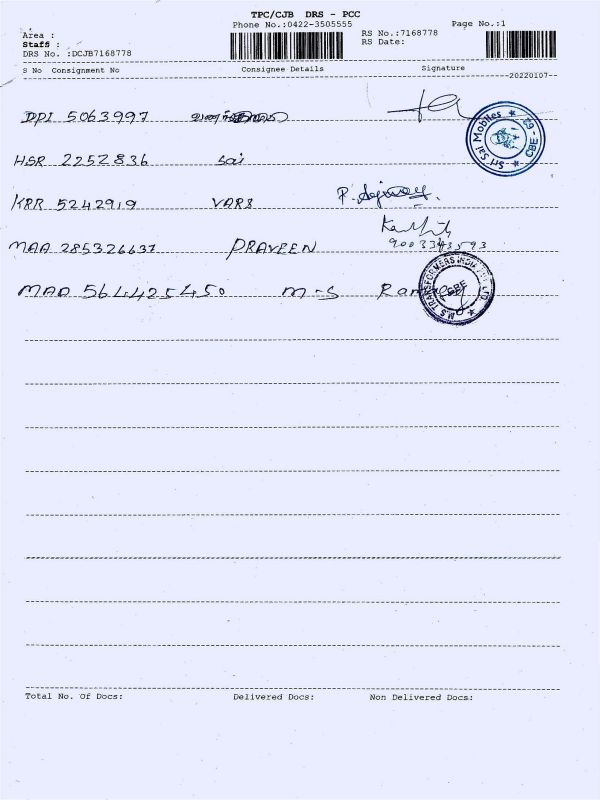 TPC/CJB DRS - PCC
Phone No.:0422-3505555
Page No.:1
Area :
Staff :
DRS No. :DCJB7168778
RS No.:7168778
RS Date:
S No Consignment No Consignee Details Signature
20220107
DPI 5063997
Sri Sai Mobiles * CBE - 29 *
HSR 2252836 Sai
KRR 5242919 VARS P.
9003343593
MAA 285326637 PRAVEEN
MAA 564425450 M-S
M.S TRANSFORMERS INDIA PVT LTD. * CBE
Total No. Of Docs: Delivered Docs: Non Delivered Docs: